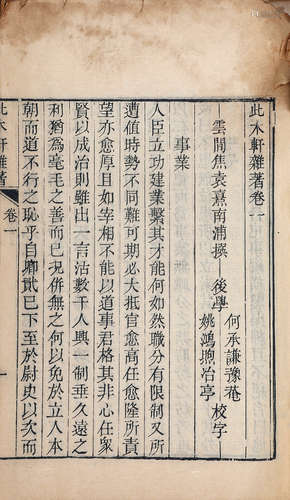 此木軒雜著卷一
雲間焦袁熹南浦撰 後學
何承謙豫菴
姚鴻煦治亭
校字
事業
人臣立功建業繫其才能何如然職分有限制又所
遭值時勢不同難可期必大抵官愈高任愈隆所責
望亦愈厚且如宰相不能以道事君格其非心任眾
賢以成治則雖出一言活數千人興一制垂久遠之
利猶為毫毛之善而已况併無之何以免於立人本
朝而道不行之恥乎自卿貳已下至於尉史以次而
此木軒雜著
卷一
一